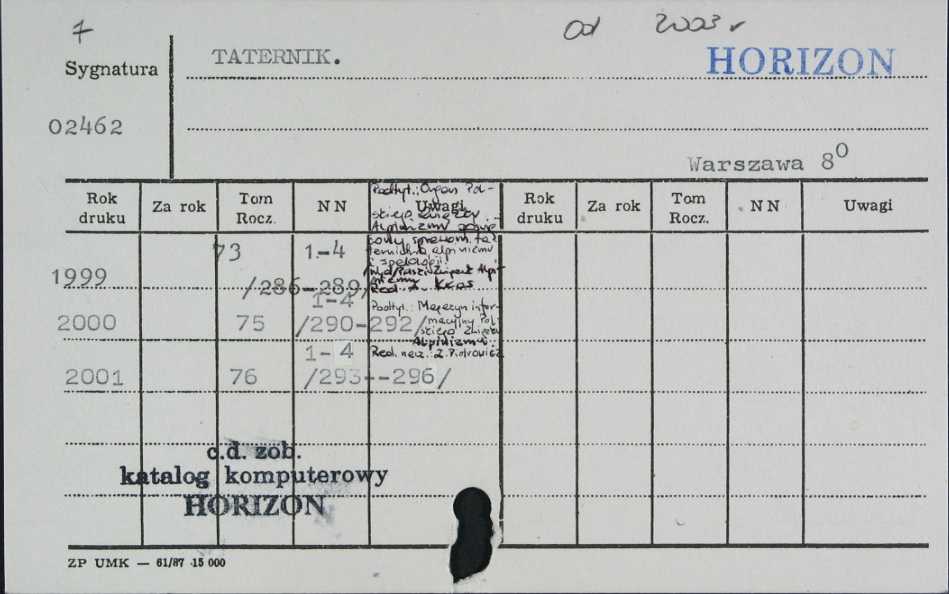 7 Od 2003 r
Sygnatura TATERNIK. HORIZON
02462
Warszawa 8°
Rok druku Za rok Tom Rocz. NN Uwagi Rok druku Za rok Tom Rocz. NN Uwagi
Podtyt.: Organ Pol-
skiego Związku
Alpinizmu
1999 73 1.-4
i speleologii.
/286-289/
Red. Z. Kras
1-4 Podtyt.: Magazyn infor-
2000 75 /290-292/ macyjny Pol
skiego Związku
Alpinizmu.
1-4 Red. nacz.: Z. Piotrowicz
2001 76 /293--296/
c.d. zob.
katalog komputerowy
HORIZON
ZP UMK — 61/87 15 000